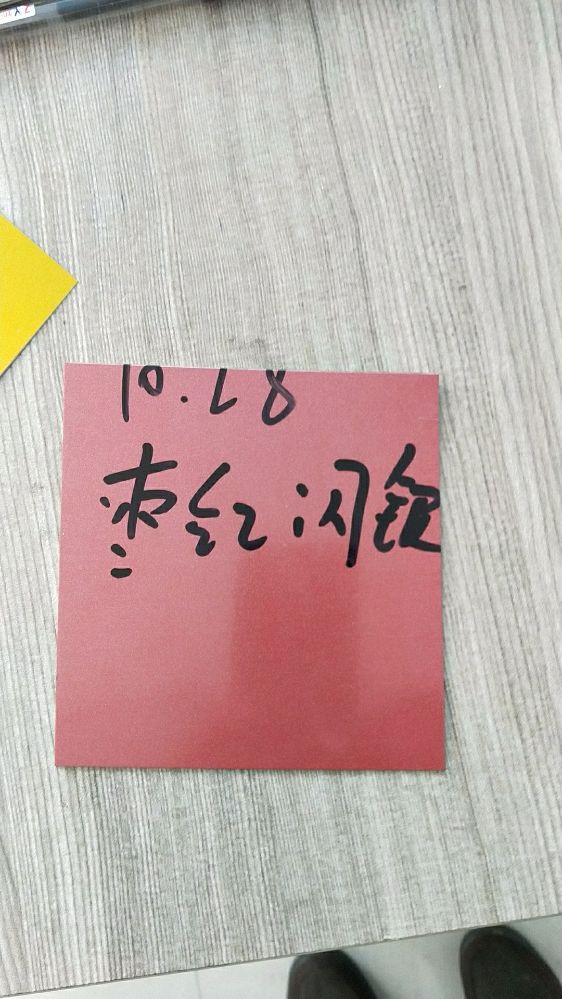 10.28
枣红闪银